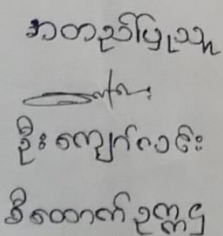 အတည်ပြုသူ
ဦးကျော်ဝင်း
ဒီထောက်ဥက္ကဌ